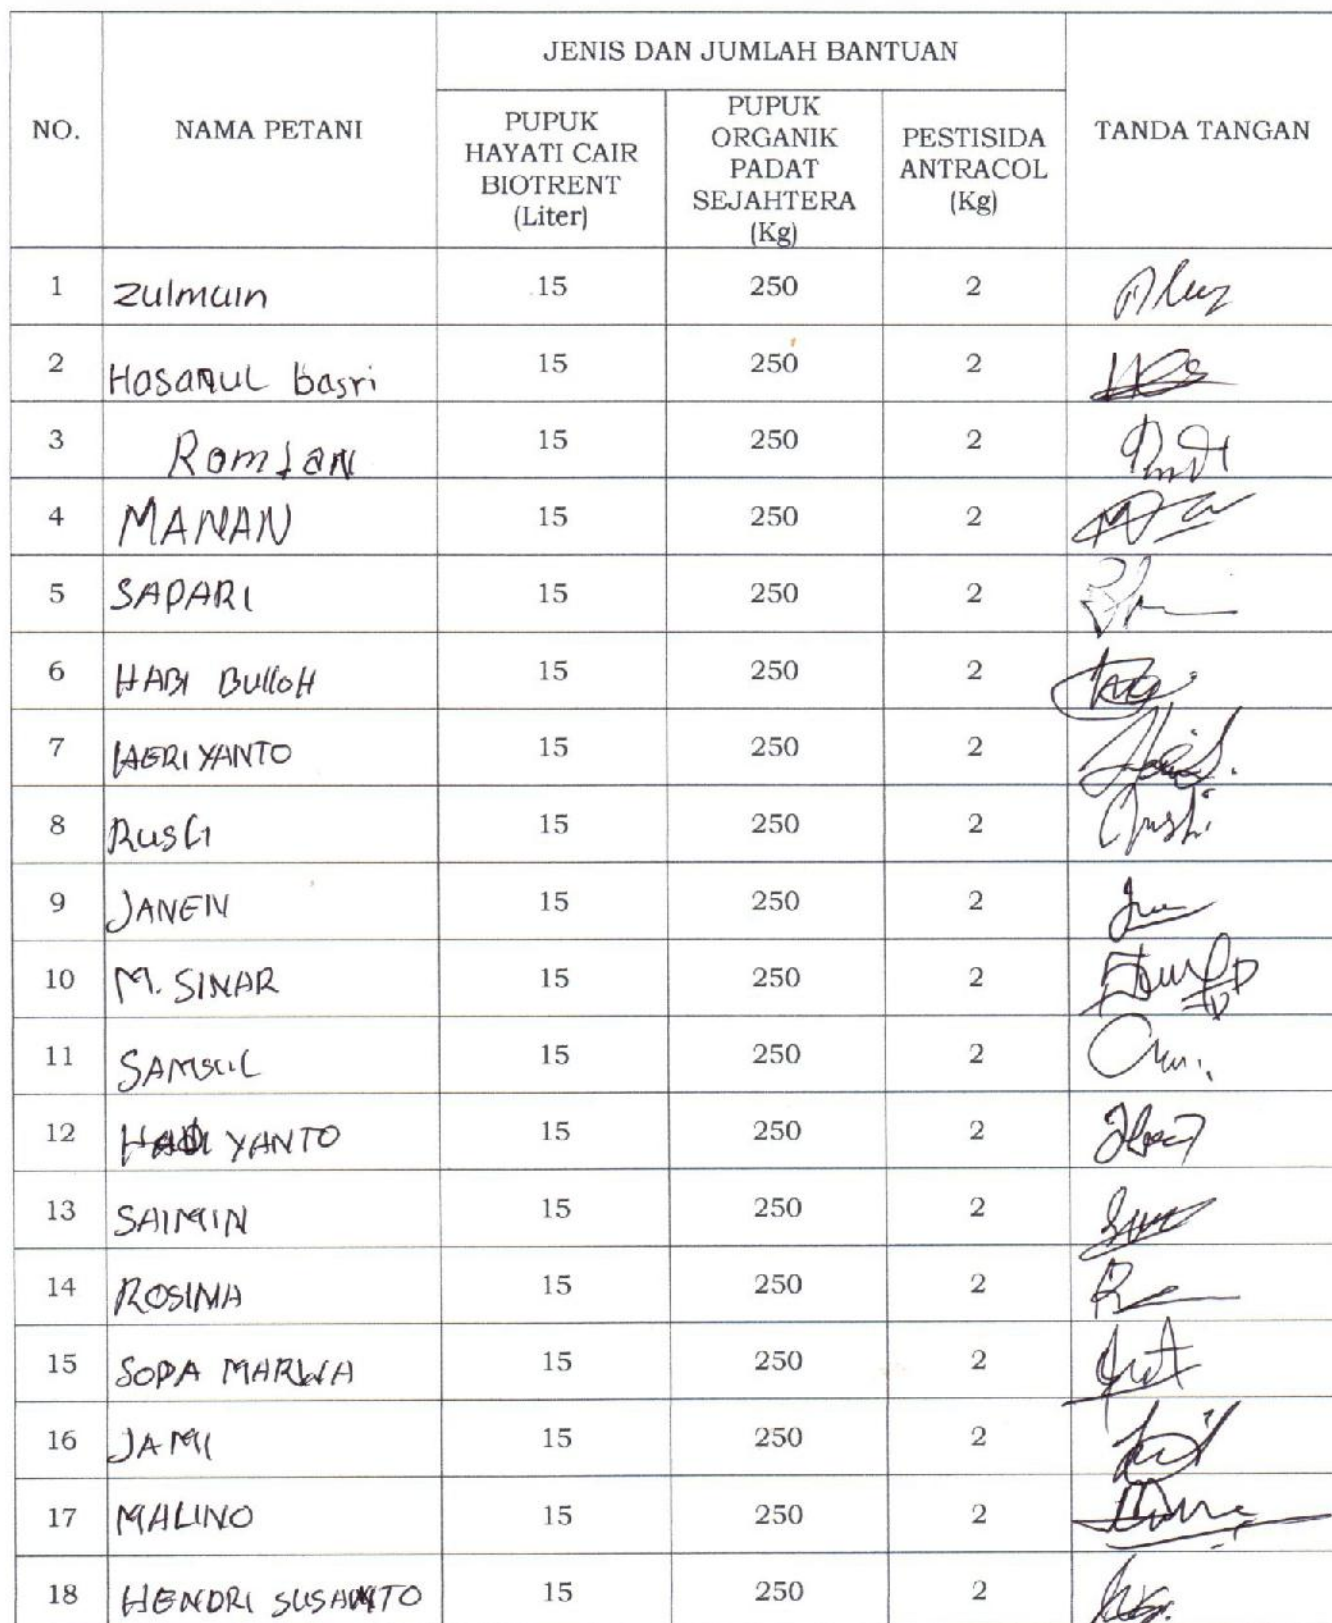 JENIS DAN JUMLAH BANTUAN
NO. NAMA PETANI PUPUK HAYATI CAIR BIOTRENT (Liter) PUPUK ORGANIK PADAT SEJAHTERA (Kg) PESTISIDA ANTRACOL (Kg) TANDA TANGAN
1 Zulmain 15 250 2
2 Hasanul basri 15 250 2
3 Romlan 15 250 2
4 MANAN 15 250 2
5 SAPARI 15 250 2
6 HABI BulloH 15 250 2
7 HERI YANTO 15 250 2
8 RusLi 15 250 2
9 JANEN 15 250 2
10 M. SINAR 15 250 2
11 SAMSUL 15 250 2
12 HADI YANTO 15 250 2
13 SAIMIN 15 250 2
14 ROSINA 15 250 2
15 SOPA MARWA 15 250 2
16 JAMI 15 250 2
17 MALINO 15 250 2
18 HENDRI SUSANTO 15 250 2